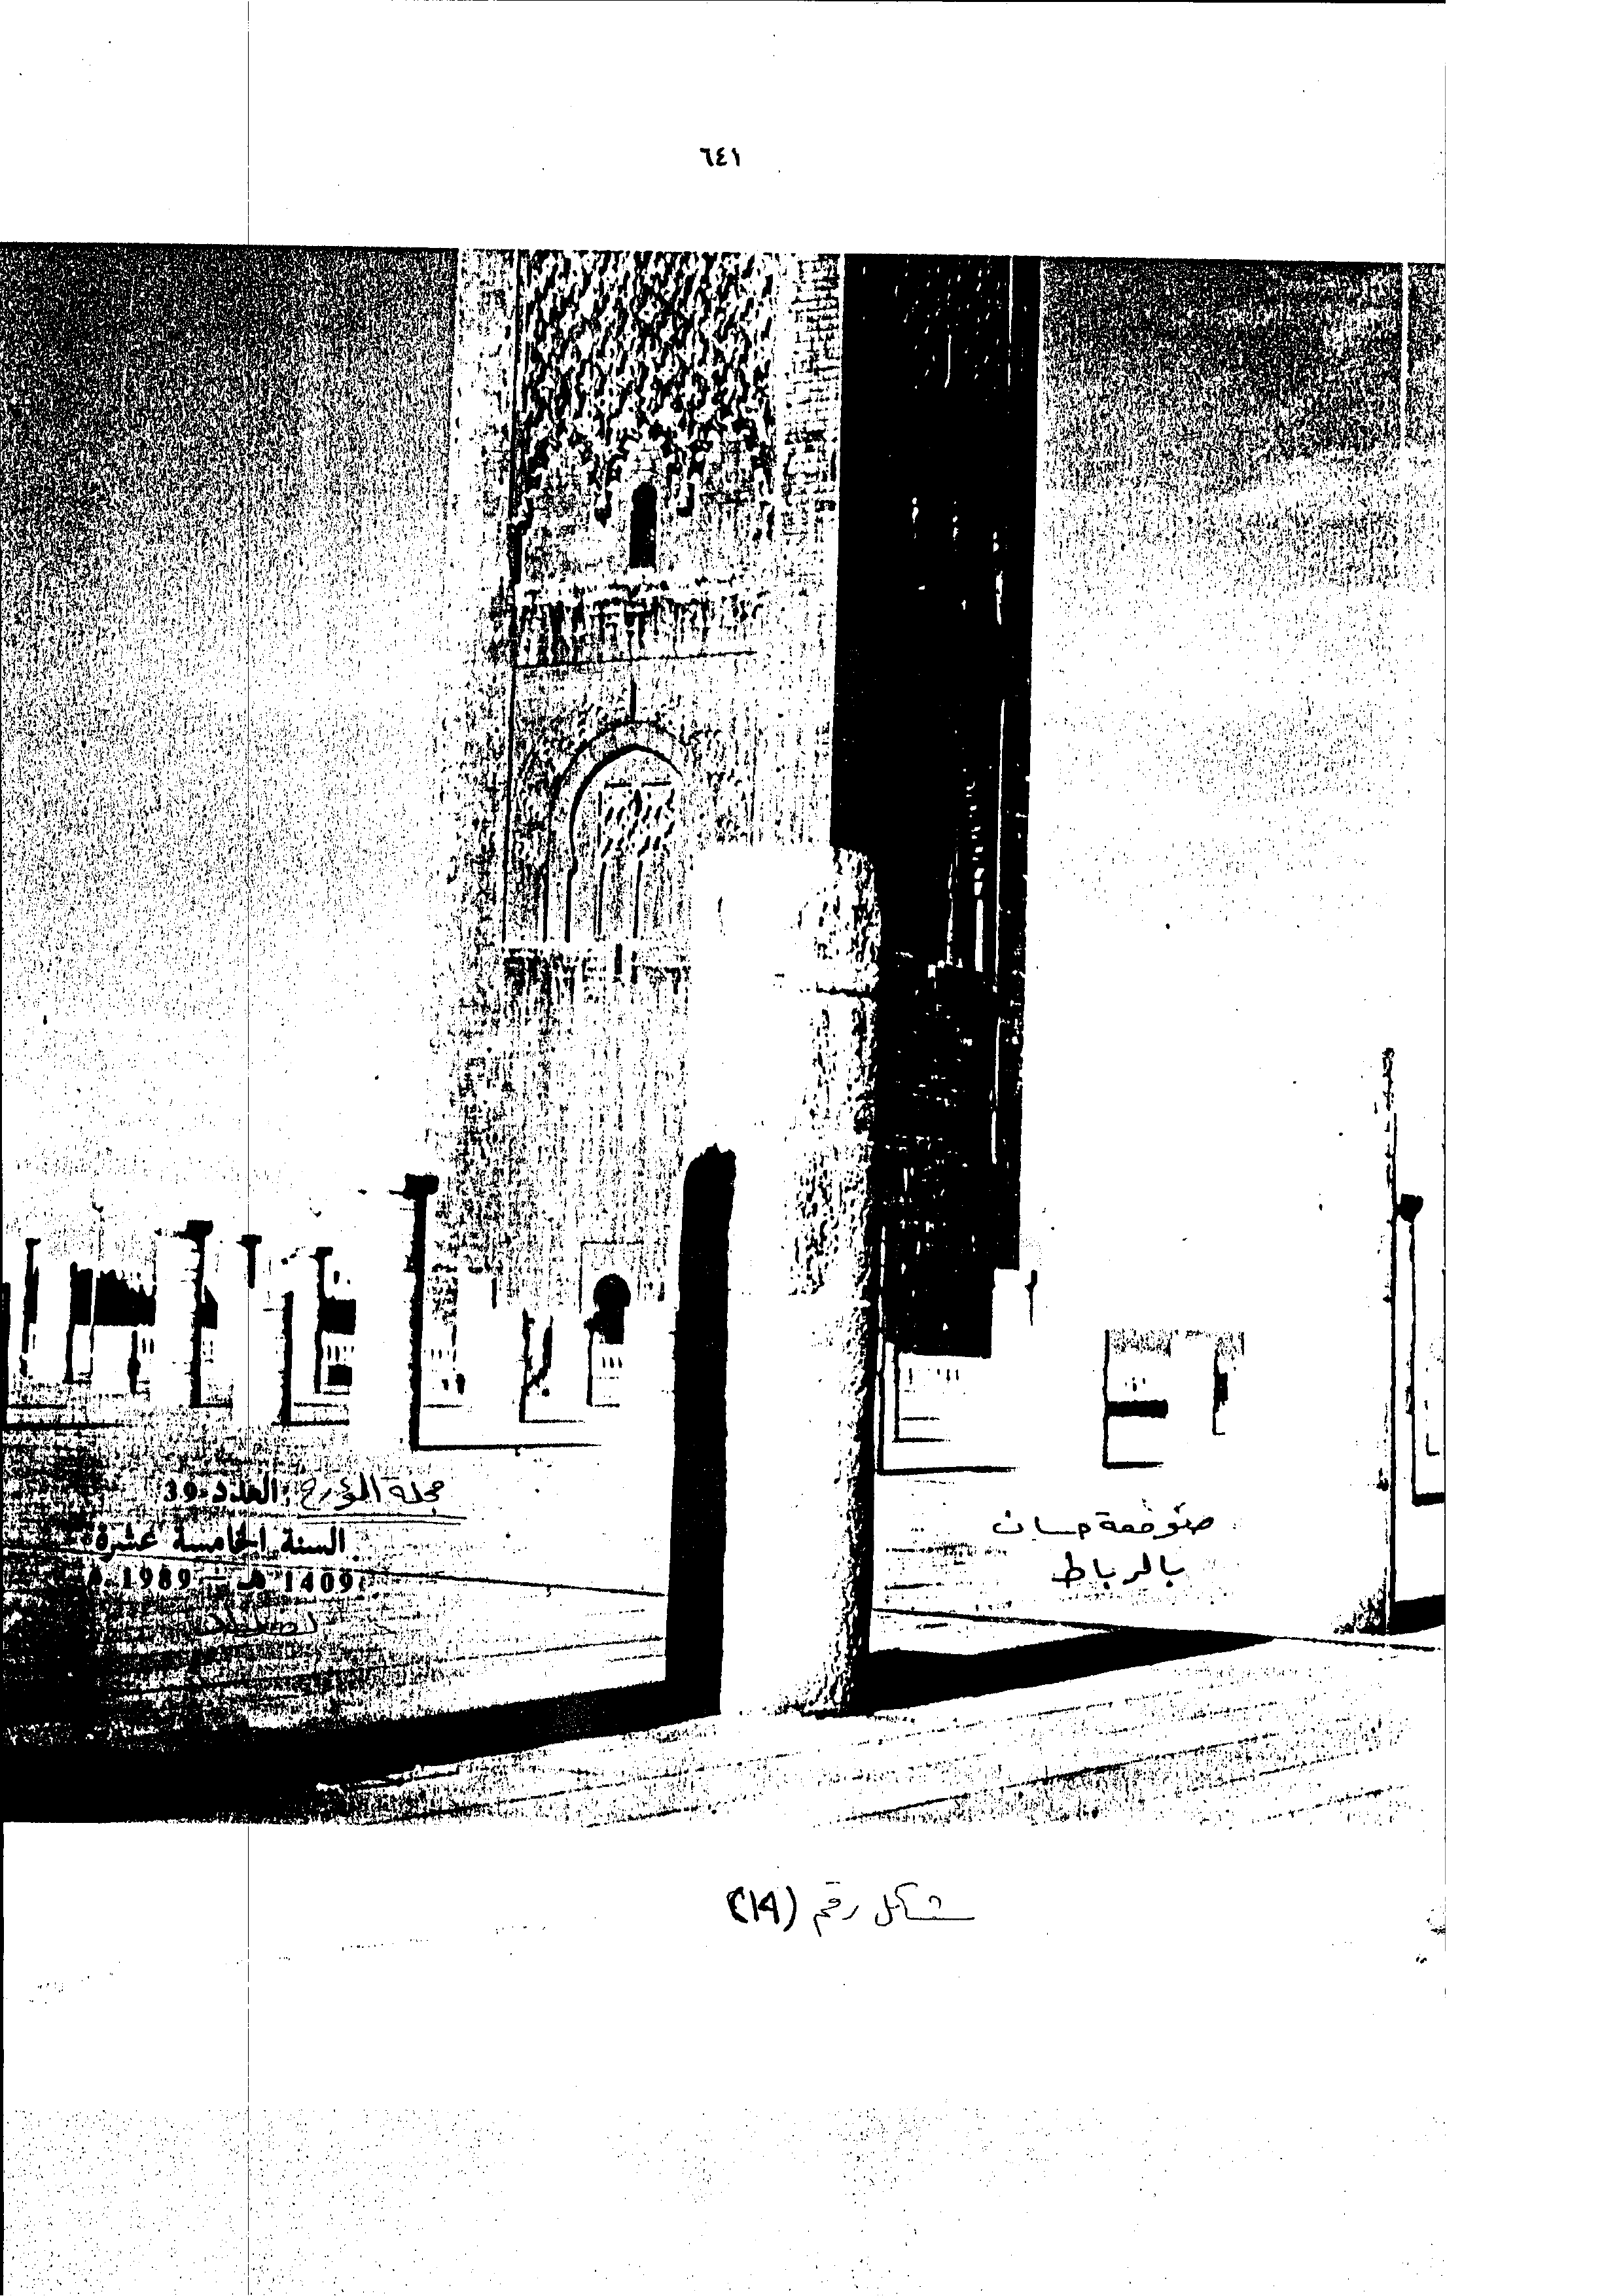 ٦٤١
مجلة المؤرخ العدد 39
السنة الخامسة عشرة
1409 هـ - 1989
صومعة حسان
بالرباط
شكل رقم